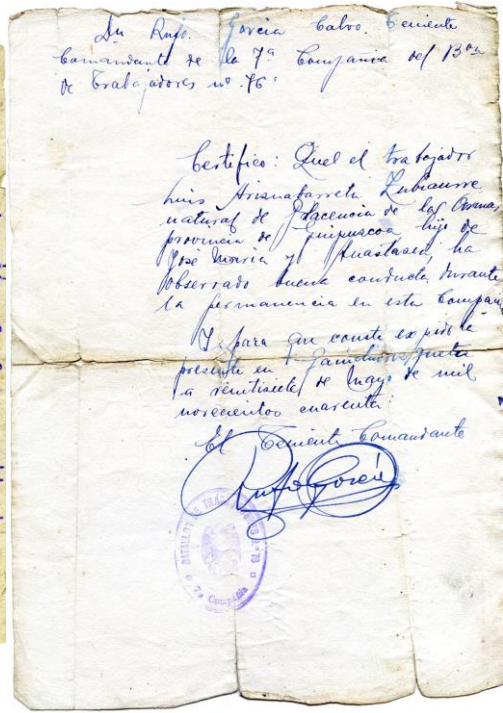 Dn Rufo. García Calvo. Teniente
Comandante de la 7ª Compañia del Bon
de Trabajadores nº 76
Certifico: Quel el trabajador
Luis Arisnabarreta Zubiaurre
natural de Placencia de las Armas
provincia de Guipuscoa hijo de
José Maria y Anastasia, ha
observado buena conducta, durante
la permanencia en esta Compañia
Y para que conste expido la
presente en
a veintisiete de Mayo de mil
novecientos cuarenta
El Teniente Comandante
Rufo García
BATALLON DE TRABAJADORES Nº 76
7ª Compañía